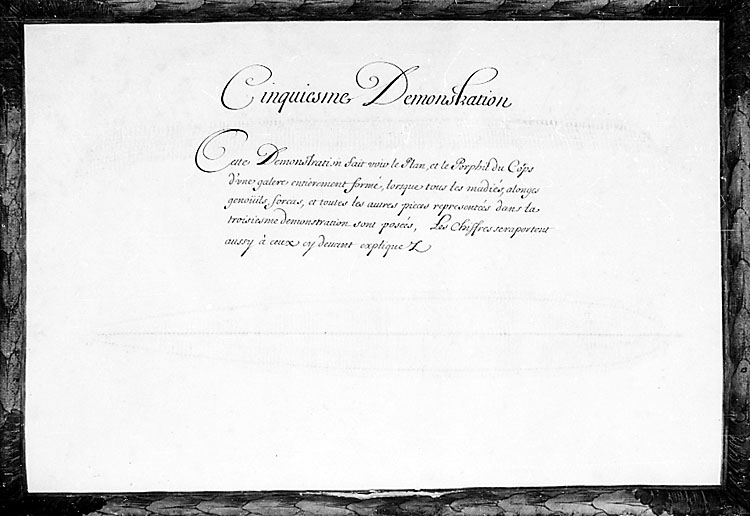 Cinquiesme Demonstration
Cette Demonstration fait voir le Plan, et le Porphil du Cops
d'vne galere entierement formé, lorsque tous les madiés, alonges
genoüils, forcas, et toutes les autres pieces representées dans la
troisiesme demonstration sont posées, Les Chiffres seraportent
aussy à ceux cy devant explique Z